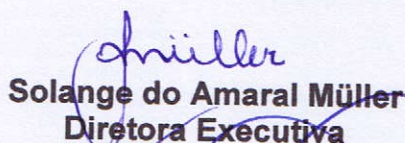 Müller
Solange do Amaral Müller
Diretora Executiva